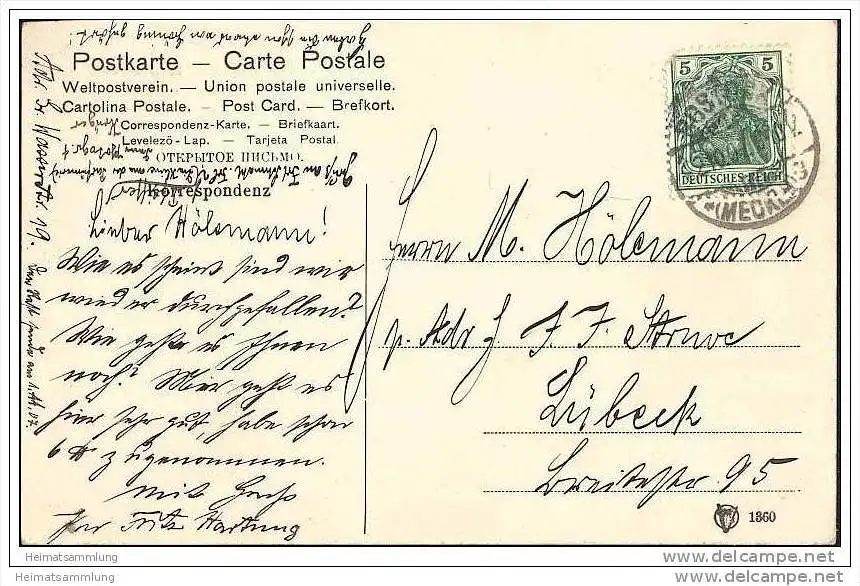 Postkarte — Carte Postale
Weltpostverein. — Union postale universelle.
Cartolina Postale. — Post Card. — Brefkort.
Correspondenz-Karte. — Briefkaart.
Levelező-Lap. — Tarjeta Postal.
ОТКРЫТОЕ ПИСЬМО.
Korrespondenz
Lieber Hölemann!
Wie es scheint sind wir
wieder durchgefallen?
Wie geht es Ihnen
noch? Mir geht es
hier sehr gut, habe schon
6 ℔ zugenommen.
Mit Gruß
Ihr Fritz Hartung
Adr. Gr. Wasserstr. 19.
5 5
DEUTSCHES REICH
(MECKLB)
Herrn M. Hölemann
p. Adr J. F. Struve
Lübeck
Breitestr. 95
1360
Heimatsammlung
Heimatsammlung
www.delcampe.net